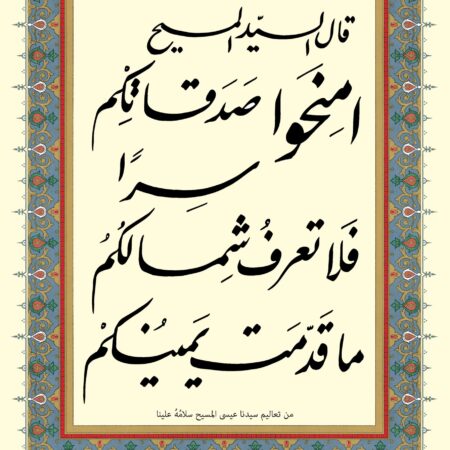 قال السيّد المسيح
امنِحُوا صَدَقاتِكُم
سِرًا
فَلا تعرفُ شِمالكُمُ
ما قَدّمَت يَمينُكُمْ
من تعاليم سيدنا عيسى المسيح سلامُهُ علينا